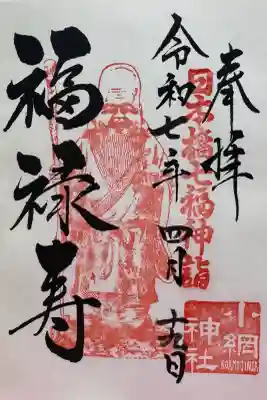 奉拝
日本橋七福神詣
小網
神社
KOAMIJINJA
令和七年 四月 十九日
福禄寿